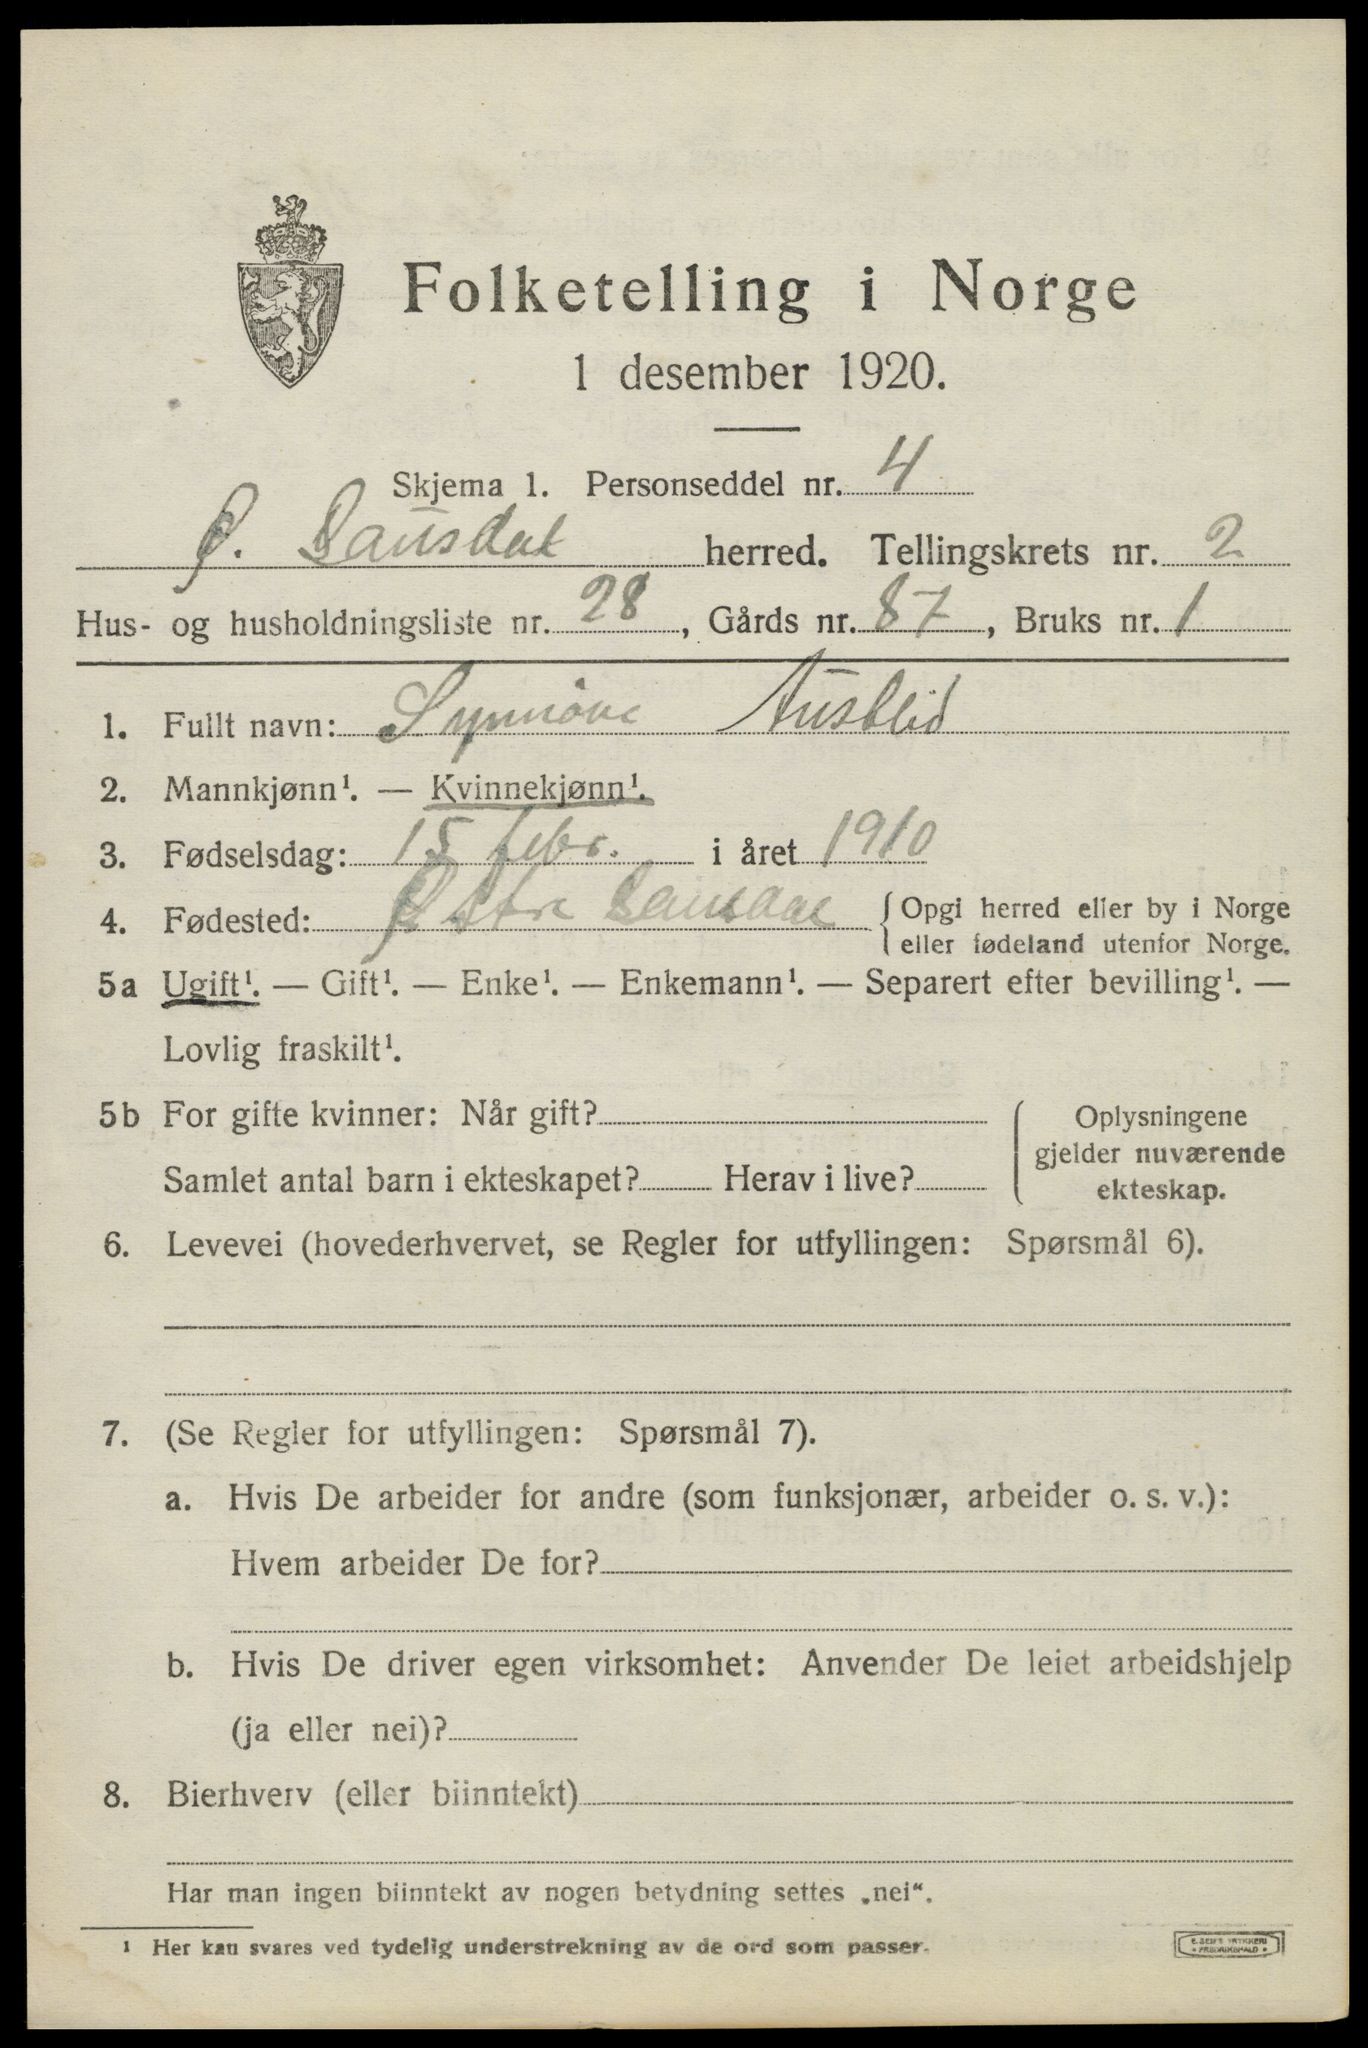 Folketelling i Norge
1 desember 1920.
Skjema 1. Personseddel nr. 4
Ø. Gausdal herred. Tellingskrets nr. 2
Hus- og husholdningsliste nr. 28, Gårds nr. 87, Bruks nr. 1
1. Fullt navn: Synnöve Austlid
2. Mannkjønn¹. — Kvinnekjønn¹.
3. Fødselsdag: 15 febr. i året 1910
4. Fødested: Østre Gausdal { Opgi herred eller by i Norge
eller fødeland utenfor Norge.
5a Ugift¹. — Gift¹. — Enke¹. — Enkemann¹. — Separert efter bevilling¹. —
Lovlig fraskilt¹.
5b For gifte kvinner: Når gift?
Samlet antal barn i ekteskapet? Herav i live?
Oplysningene
gjelder nuværende
ekteskap.
6. Levevei (hovederhvervet, se Regler for utfyllingen: Spørsmål 6).
7. (Se Regler for utfyllingen: Spørsmål 7).
a. Hvis De arbeider for andre (som funksjonær, arbeider o. s. v.):
Hvem arbeider De for?
b. Hvis De driver egen virksomhet: Anvender De leiet arbeidshjelp
(ja eller nei)?
8. Bierhverv (eller biinntekt)
Har man ingen biinntekt av nogen betydning settes „nei“.
¹ Her kan svares ved tydelig understrekning av de ord som passer.